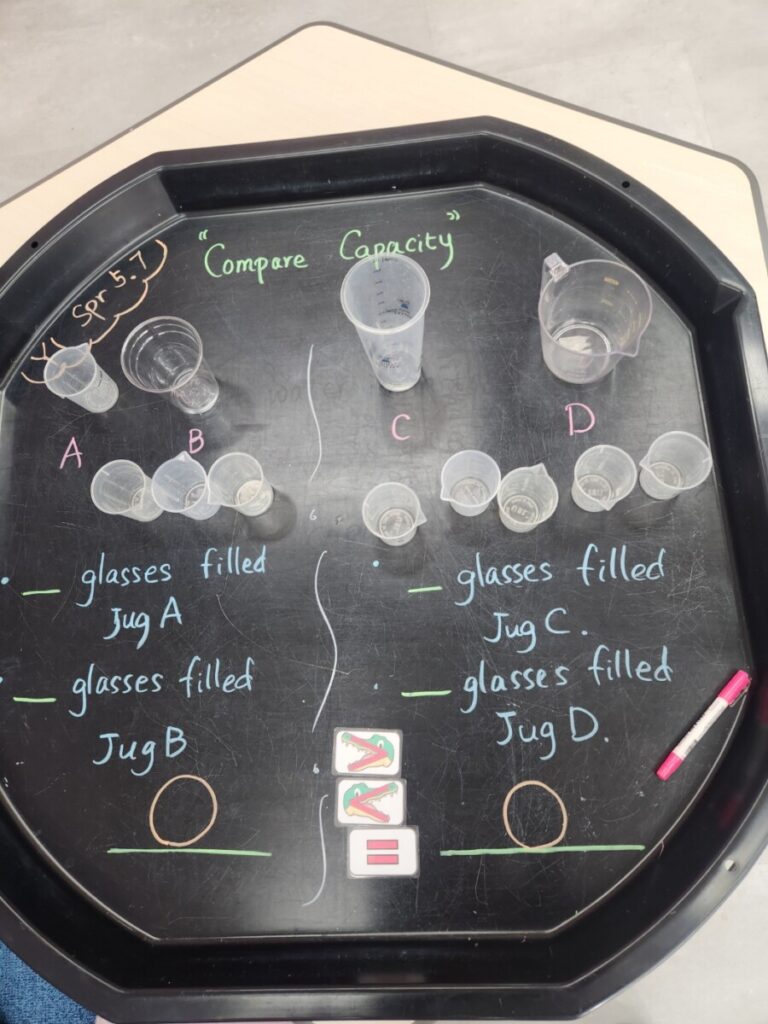 "Compare Capacity"
Y1 Spr 5.7
A
B
C
D
• __ glasses filled
Jug A
• __ glasses filled
Jug B
• __ glasses filled
Jug C.
• __ glasses filled
Jug D.
=